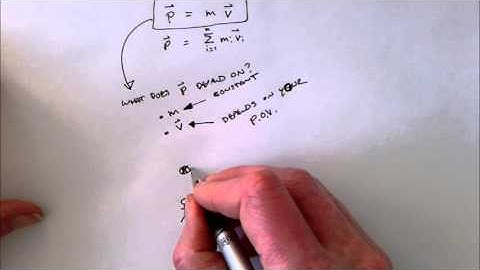 p⃗ = m v⃗
p⃗ = Σ_{i=1}^{n} m_i v⃗_i
WHAT DOES p⃗ DEPEND ON?
• m CONSTANT
• v⃗ DEPENDS ON YOUR
P.O.V.